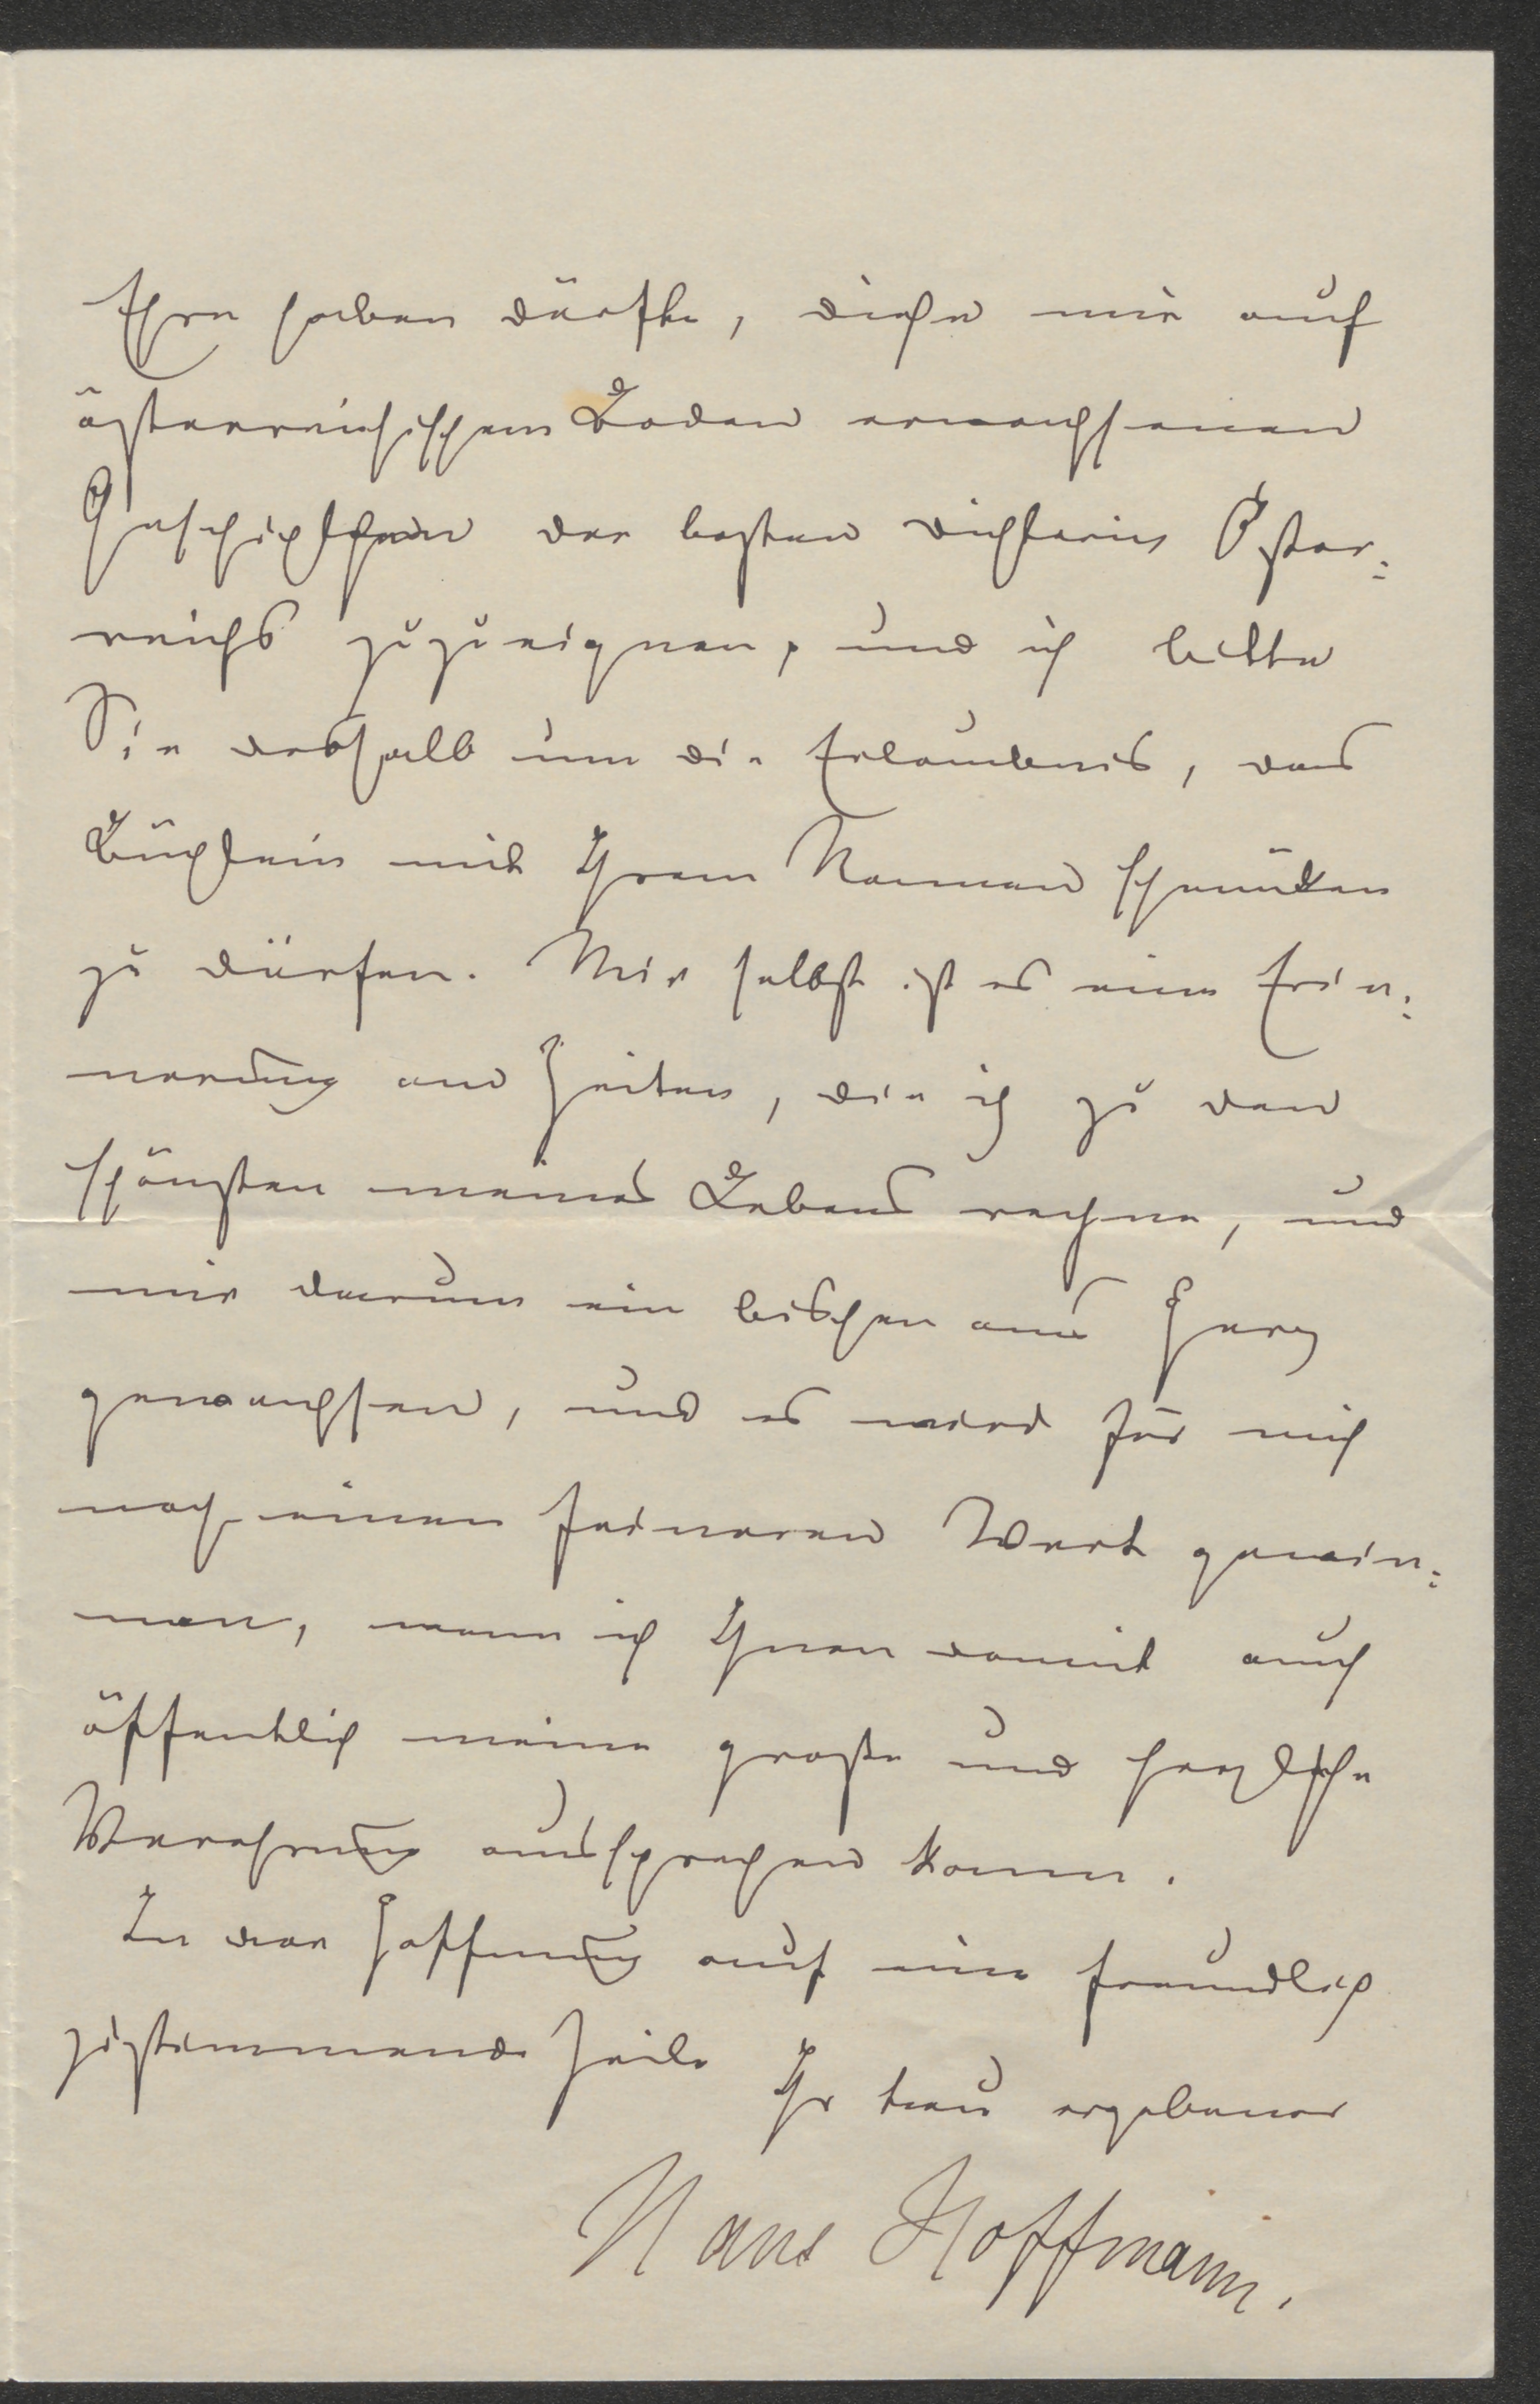 Ehre haben dürfte, diese mir auf
österreichischem Boden erwachsenen
Geschichten der besten Dichterin Öster-
reichs zuzueignen, und ich bitte
Sie deshalb um die Erlaubnis, das
Büchlein mit Ihrem Namen schmücken
zu dürfen. Mir selbst ist es eine Erin-
nerung an Zeiten, die ich zu den
schönsten meines Lebens rechne, und
mir darum ein bischen ans Herz
gewachsen, und es wird für mich
noch einen feineren Wert gewin-
nen, wenn ich Ihnen damit auch
öffentlich meine große und herzliche
Verehrung aussprechen kann.
In der Hoffnung auf eine freundlich
zustimmende Zeile
Ihr treu ergebener
Hans Hoffmann.